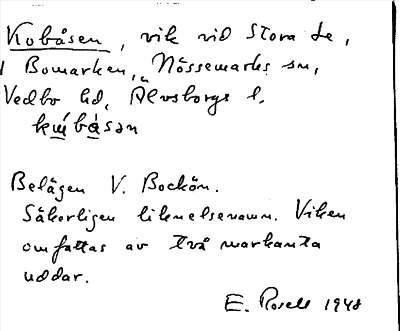 Kobåsen, vik vid Stora Le,
i Bomarken, Nössemarks sn,
Vedbo hd, Älvsborgs l.
kẁbåsən
Belägen V. Bockön.
Säkerligen liknelsenamn. Viken
omfattas av två markanta
uddar.
E. Rosell 1948